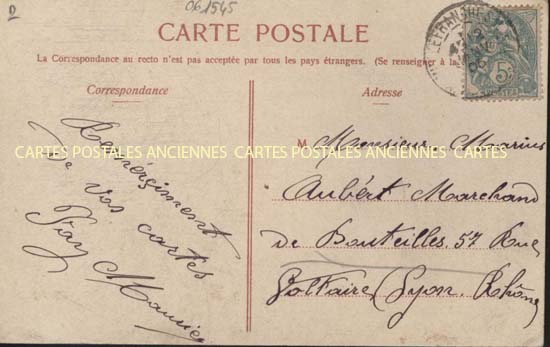 D
061545
CARTE POSTALE
La Correspondance au recto n'est pas acceptée par tous les pays étrangers. (Se renseigner à la
Correspondance
Adresse
Remerciement
de vos cartes
M Monsieur Marius
Aubert Marchand
de Bouteilles. 57 Rue
Voltaire Lyon. Rhône
CARTES POSTALES ANCIENNES CARTES POSTALES ANCIENNES CARTES
5
POSTES